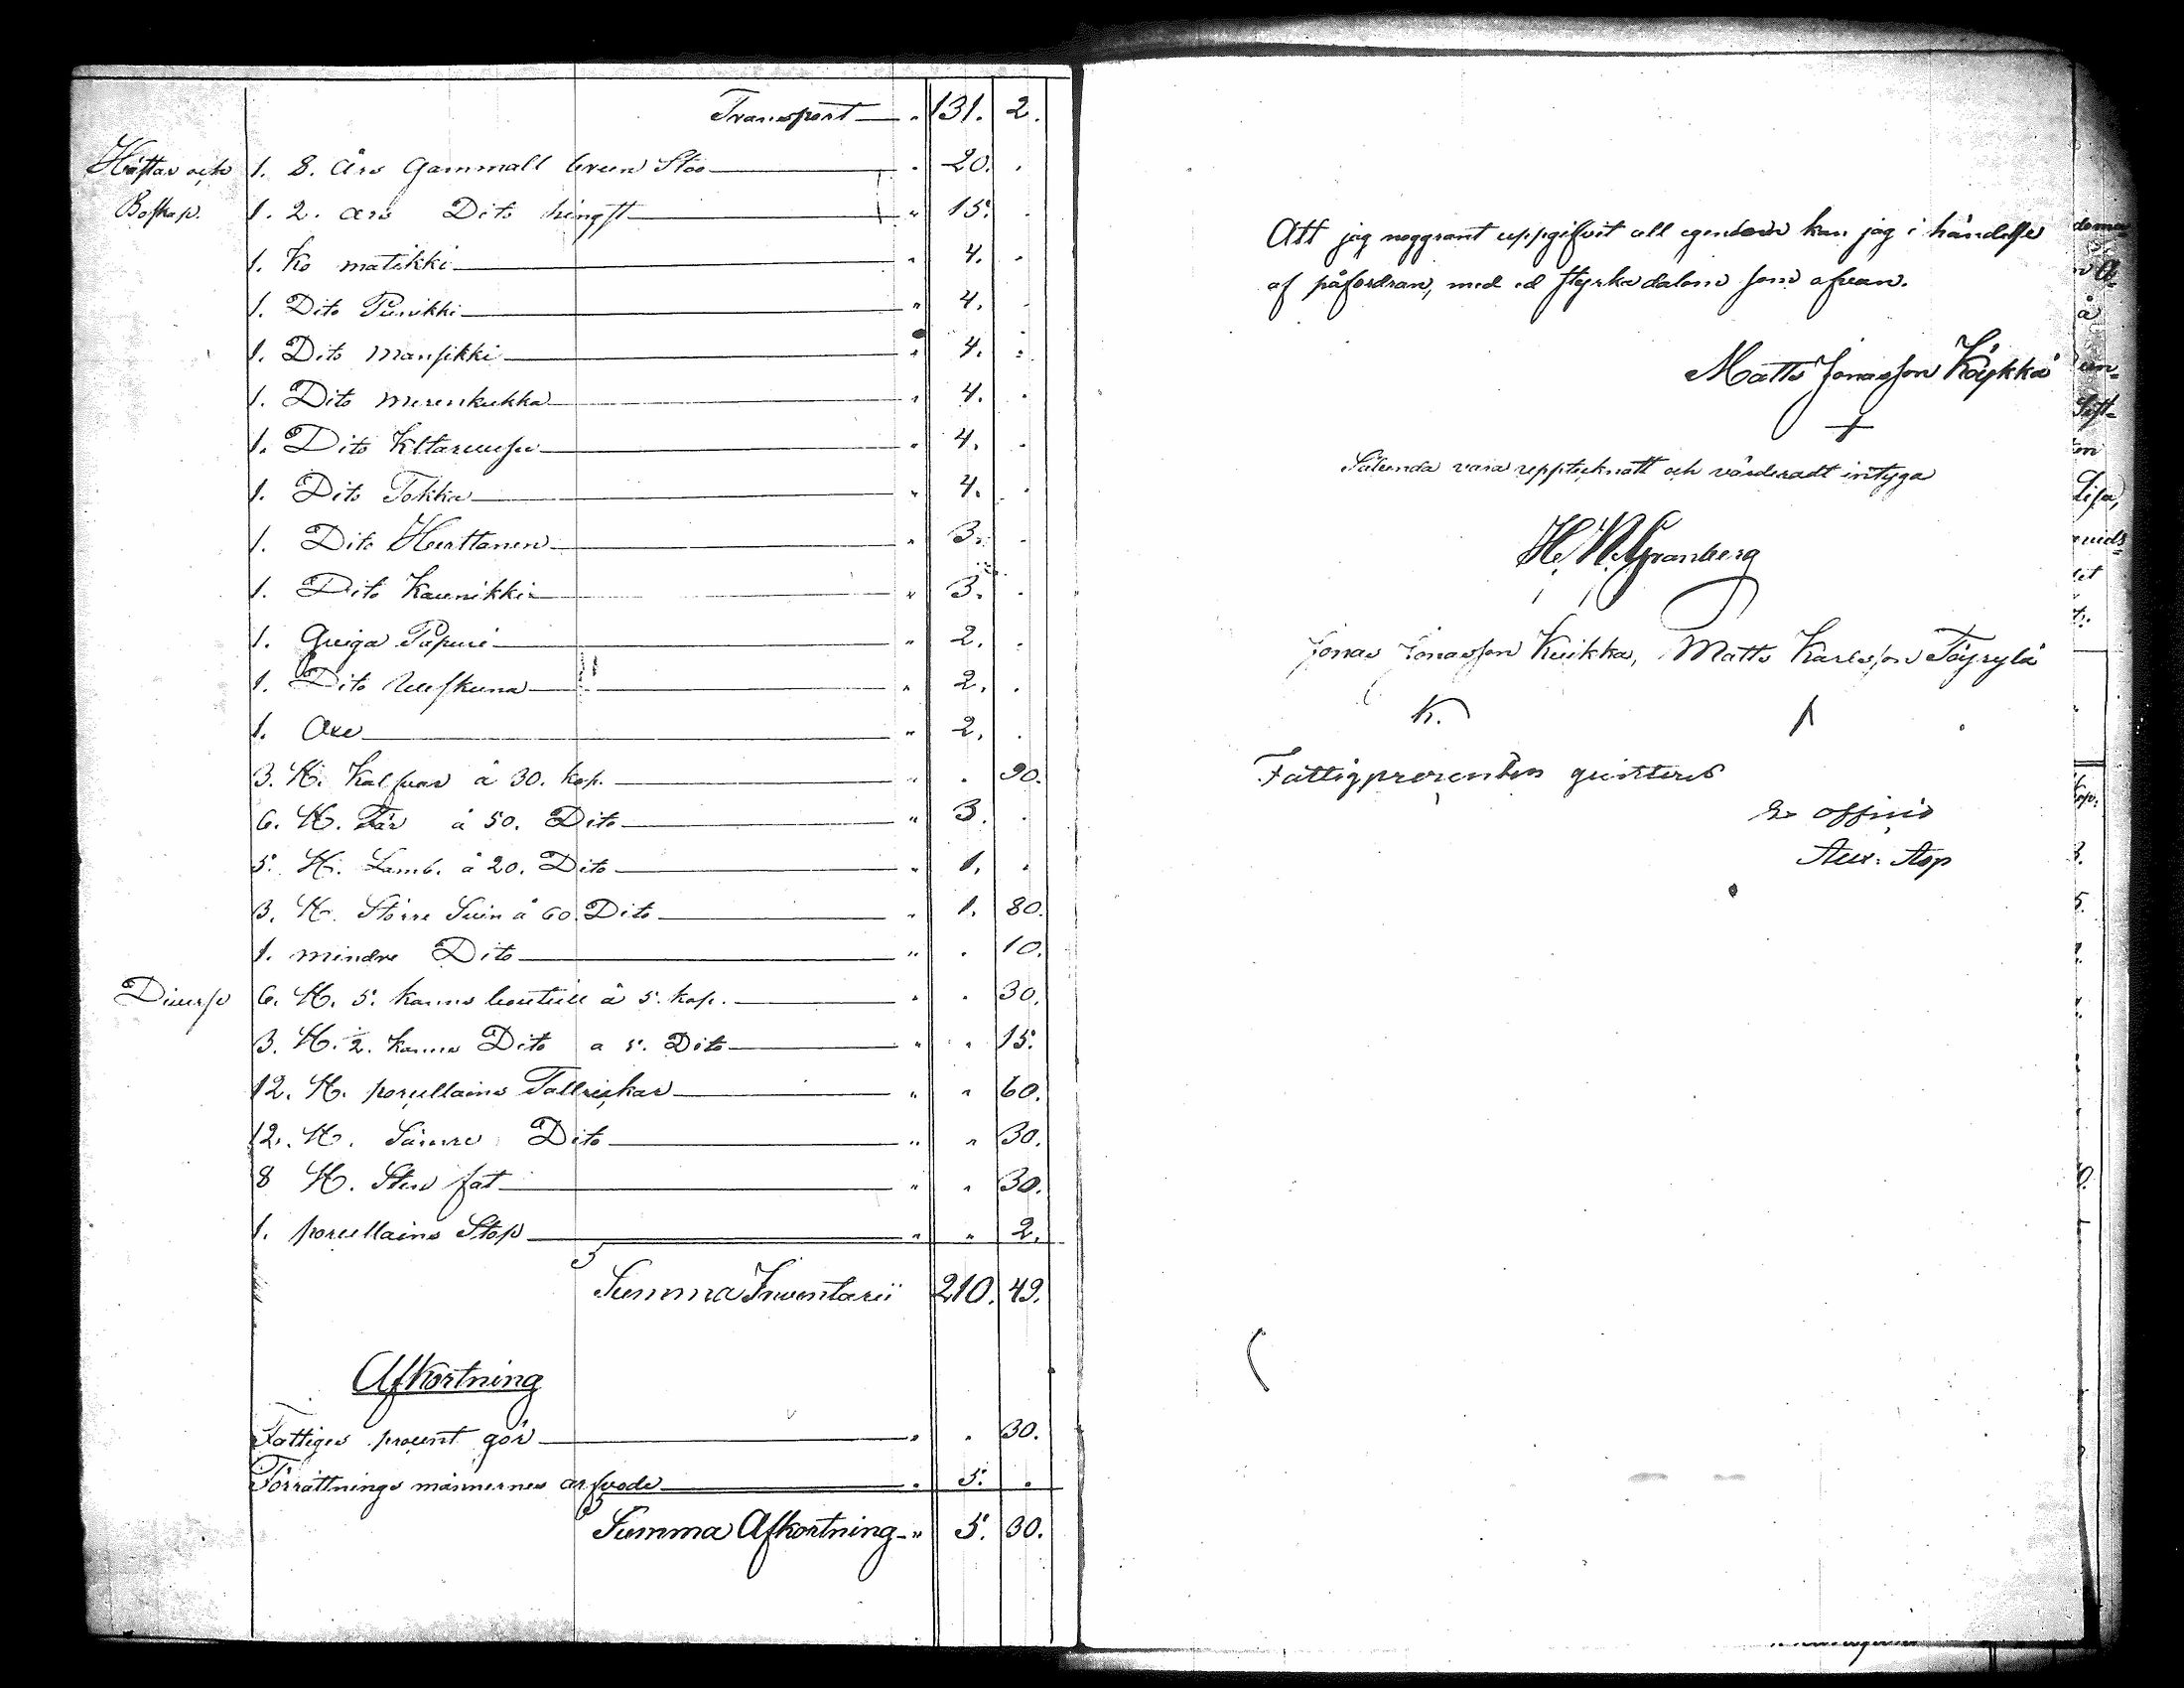 Transport — " 131. 2.
Hästar och 1. 8. Års Gammall brun Stoo — " 20. "
Boskap. 1. 2. års Dito hingst — " 15. "
1. Ko matikki — " 4. "
1. Dito Punikki — " 4. "
1. Dito Mansikki — " 4. "
1. Dito merenkukka — " 4. "
1. Dito — " 4. "
1. Dito Tokka — " 4. "
1. Dito Herttanen — " 3. "
1. Dito Kaunikki — " 3. "
1. Qviga Papuri — " 2. "
1. Dito — " 2. "
1. Oxe — " 2. "
3. St. Kalfvar á 30. kop. — " " 90.
6. St. Får á 50. Dito — " 3. "
5. St. Lamb. á 20. Dito — " 1. "
3. St. Större Svin á 60. Dito — " 1. 80.
1. mindre Dito — " " 10.
Diverse 6. St. 5. kanns bouteill á 5. kop. — " " 30.
3. St. 2. kanns Dito a 5. Dito — " " 15.
12. St. porcellains Tallrickar — " " 60.
12. St. Sämre Dito — " " 30.
8 St. Sten fat — " " 30.
1. porcellains Stop — " " 2.
Summa Inventarii 210. 49.
Afkortning
Fattiges procent gör — " " 30.
Förrättnings männernes arfvode — " 5. "
Summa Afkortning — " 5. 30.
Att jag noggrant uppgifvit all egendom kan jag i händelse
af påfordran, med ed styrka datum som ofvan.
Matts Jonasson Köykkä
+
Sålunda vara upptecknatt och värderadt intyga
H. W. Granberg
Jonas Jonasson Kuikka, Matts Karlsson Töyrylä
K.
Fattigprocenten quitteras
Ex officio
Alex: Asp